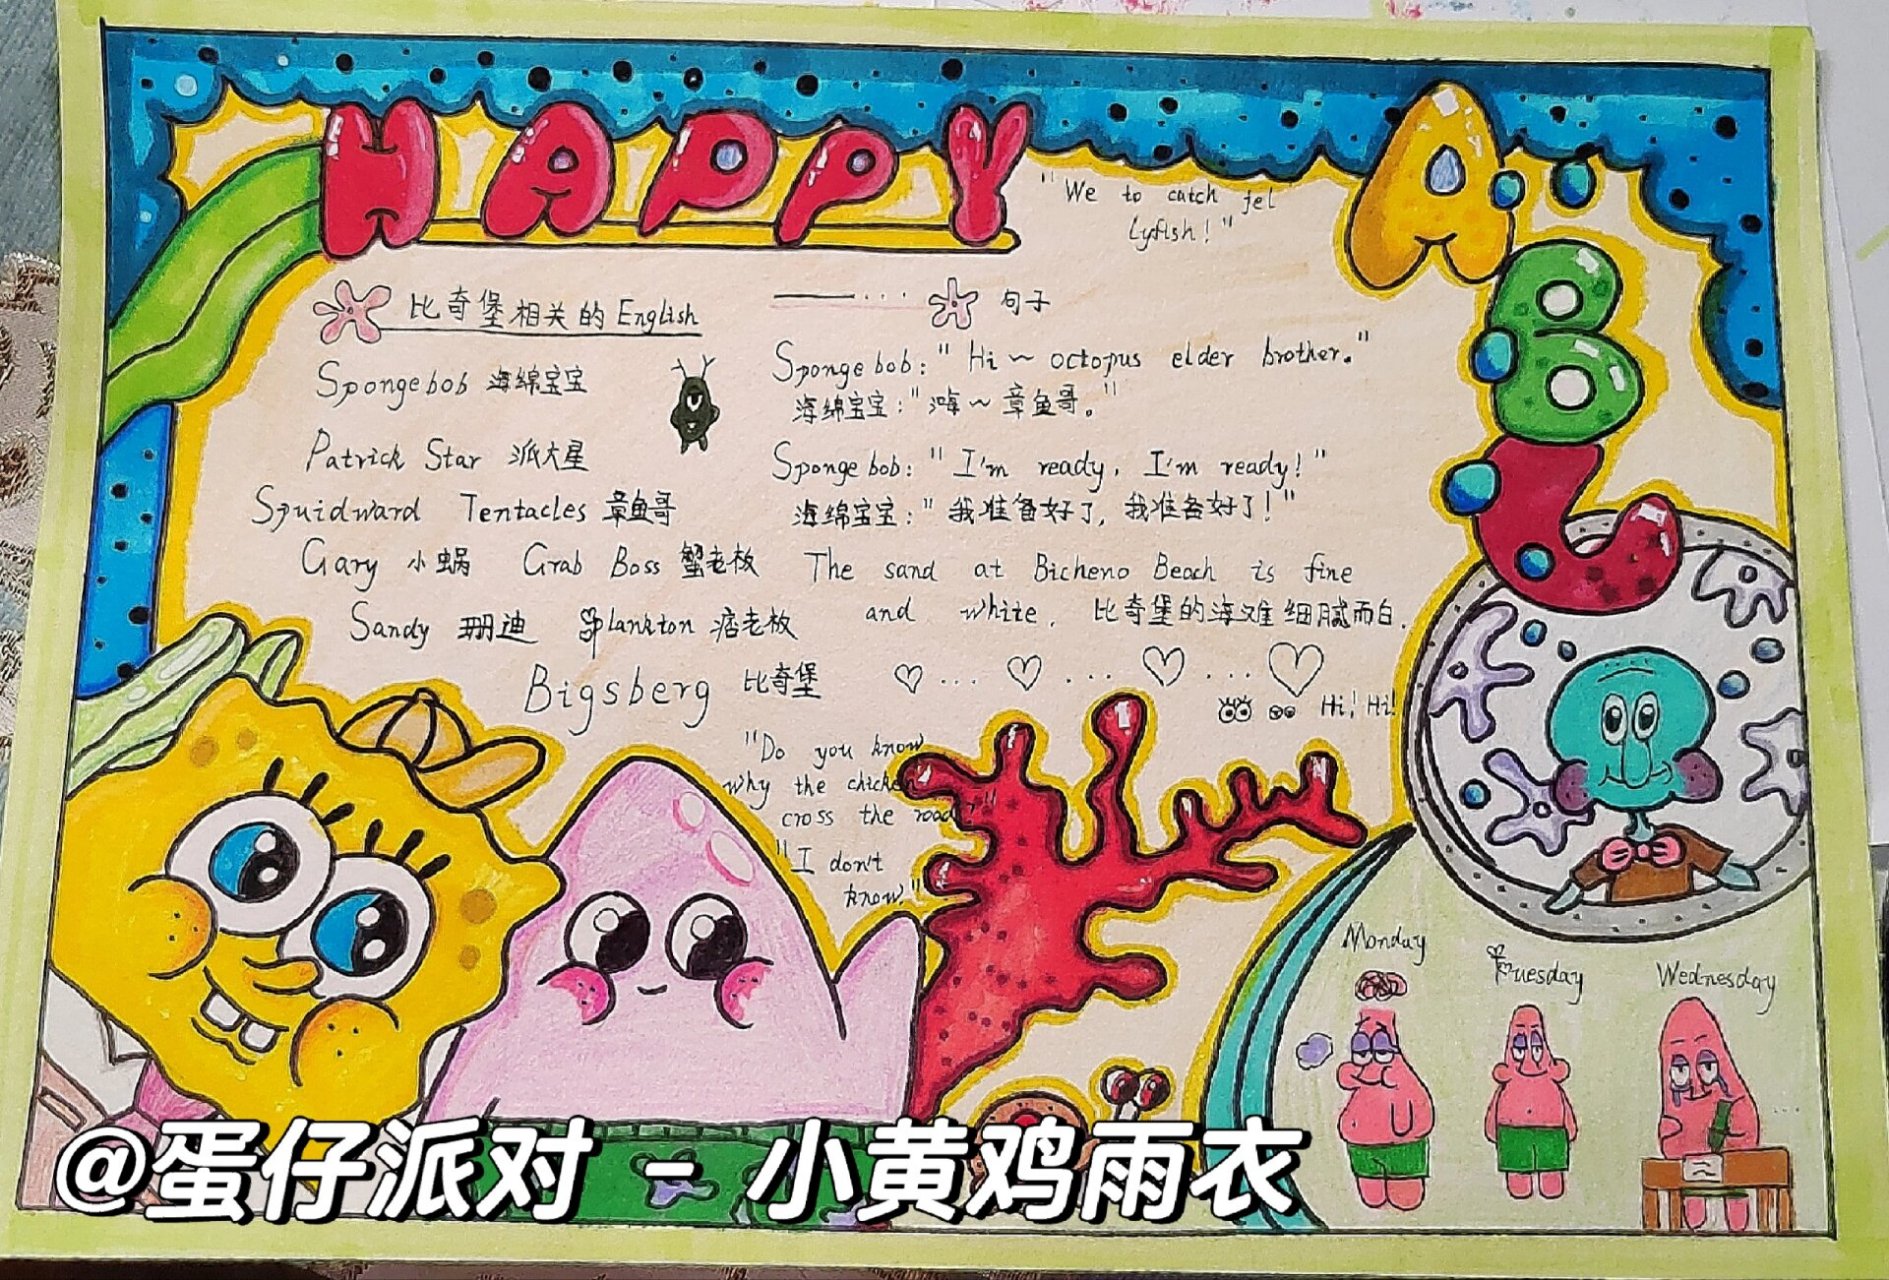 HAPPY
ABC
"We to catch jel
lyfish!"
比奇堡相关的 English
Spongebob 海绵宝宝
Patrick Star 派大星
Squidward Tentacles 章鱼哥
Gary 小蜗 Crab Boss 蟹老板
Sandy 珊迪 Plankton 痞老板
Bigsberg 比奇堡
句子
Spongebob: "Hi～octopus elder brother."
海绵宝宝:"嗨～章鱼哥。"
Spongebob: "I'm ready, I'm ready!"
海绵宝宝:"我准备好了,我准备好了!"
The sand at Bicheno Beach is fine
and white. 比奇堡的海滩细腻而白.
Hi! Hi!
"Do you know
why the chicken
cross the road?"
"I don't
know."
Monday Tuesday Wednesday
@蛋仔派对 - 小黄鸡雨衣